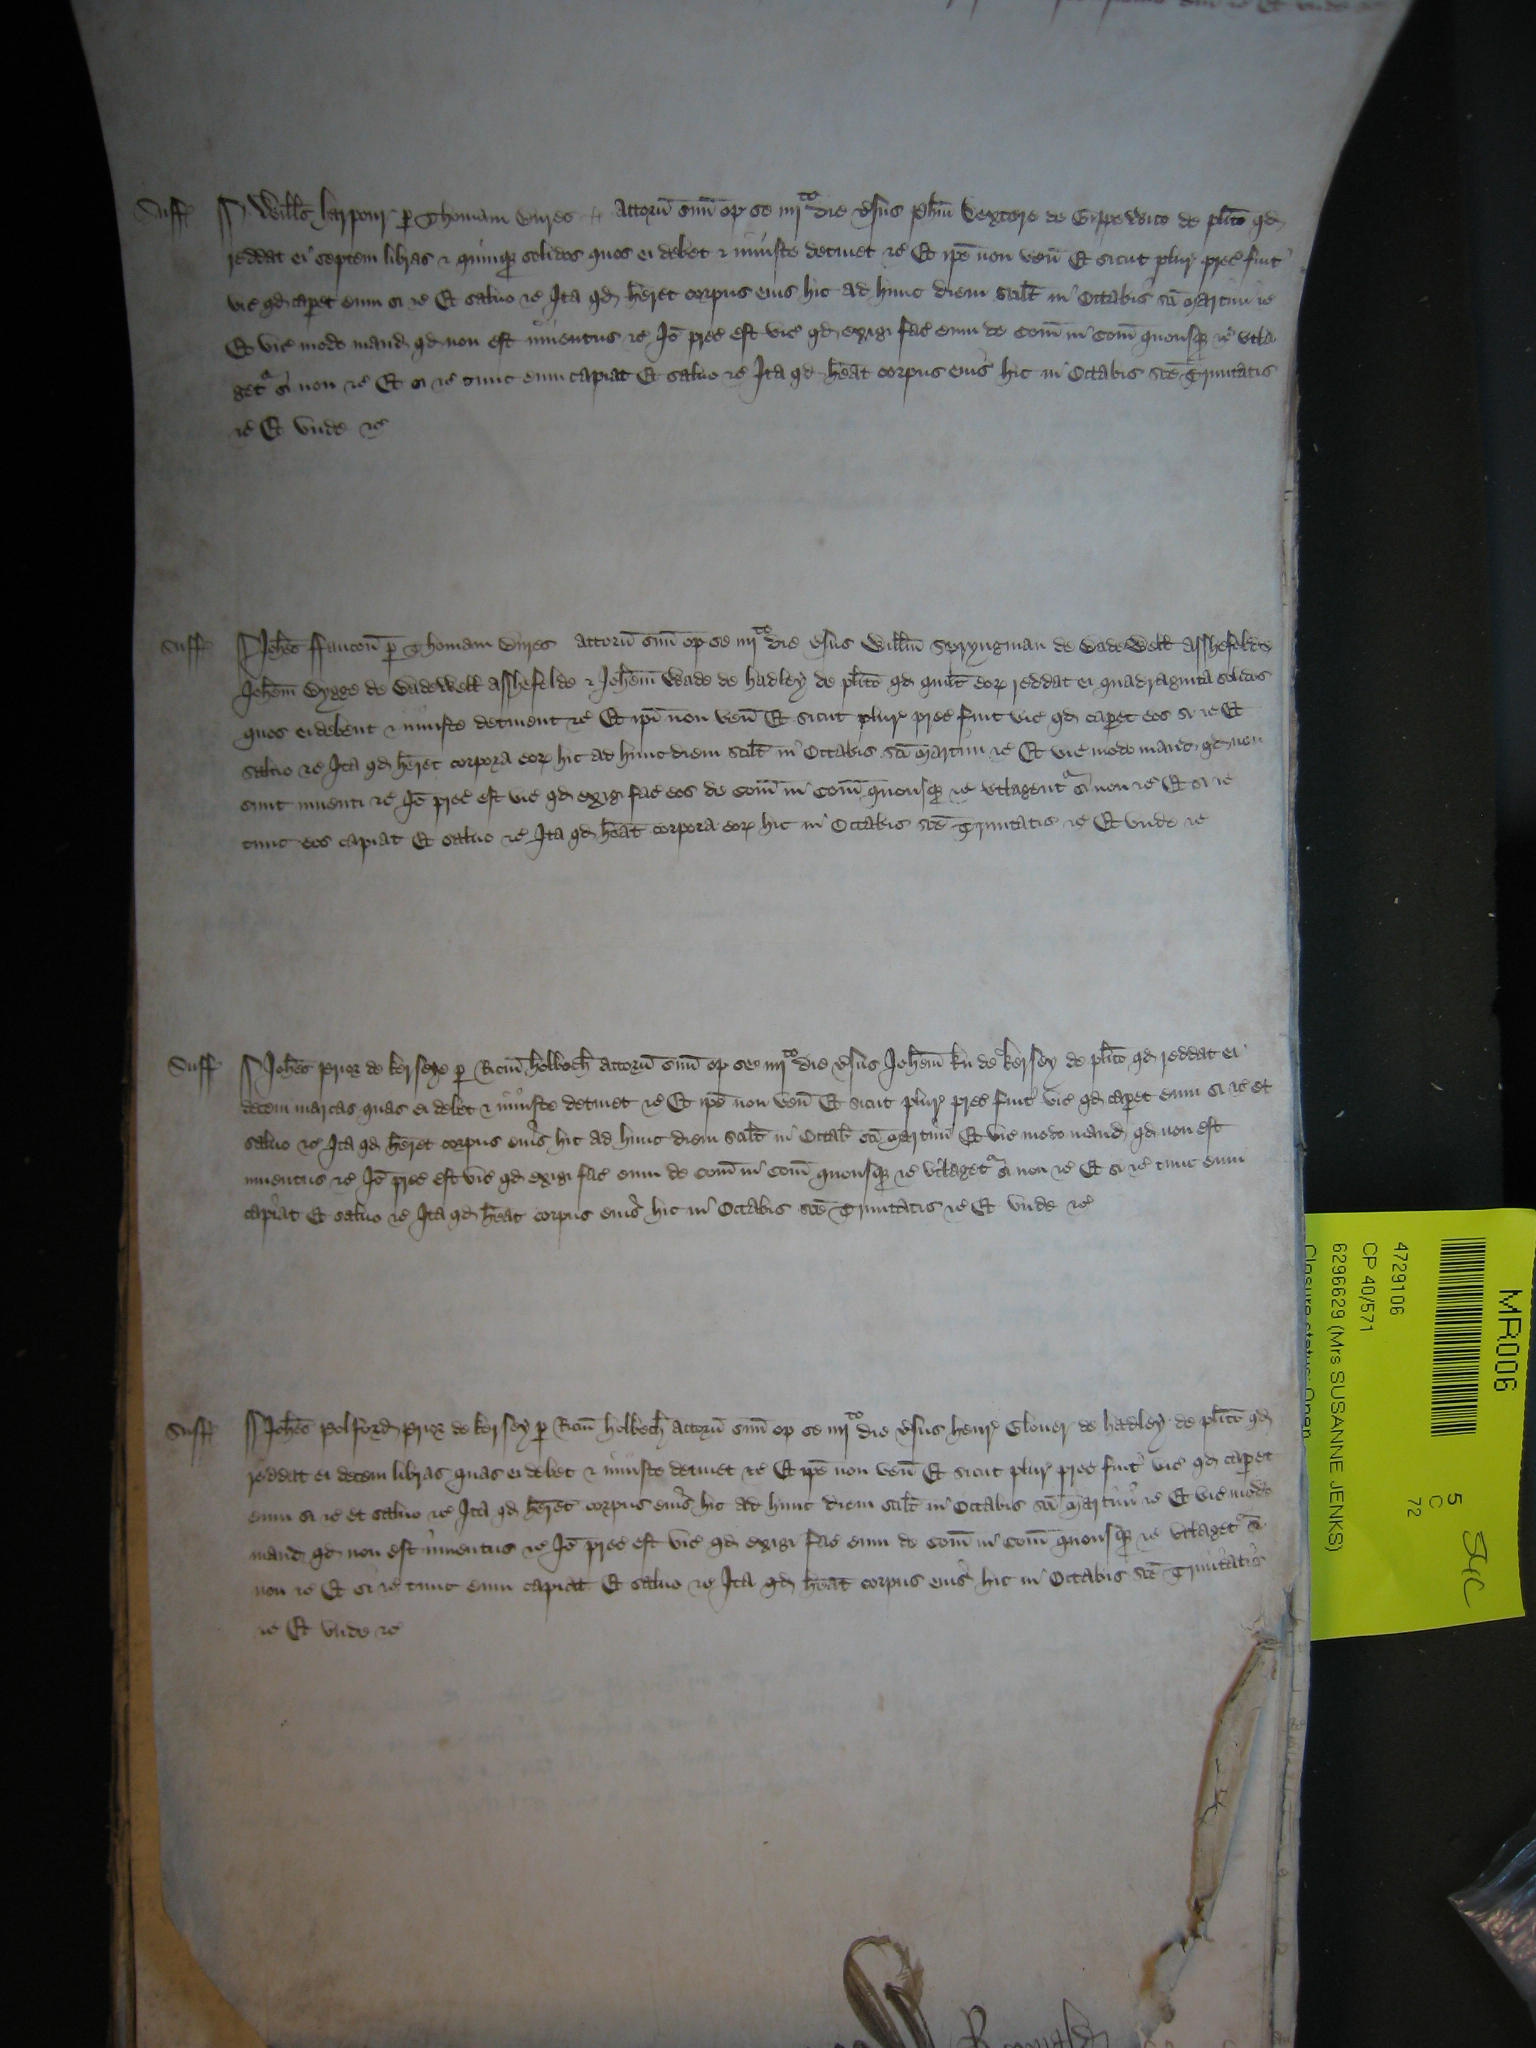 Suff Willͫs harpour p Thomam Eires Attorn̄ suū op se iiijto die v̄sus Ph̄m Textore de Gippewico de pl̄ito qd
reddat ei septem libras & quinqꝫ solidos quos ei debet & iniuste detinet &c Et ip̄e non ven̄ Et sicut plur prec̄ fuit
vic̄ qd cap̄et eum si &c Et saluo &c Ita qd h̄eret corpus eius hic ad hunc diem scil̄t in Octabis sc̄i Martini &c
Et vic̄ modo mand qd non est inuentus &c Iō prec̄ est vic̄ qd exigi fac̄ eum de Com̄ in Com̄ quousqꝫ &c vtla
getr si non &c Et si &c tunc eum capiat Et saluo &c Ita qd h̄eat corpus eius hic in Octabis sc̄e Trinitatis
&c Et vnde &c
Suff Joh̄es ffaucon̄ p Thomam Eires attorn̄ suū op se iiijto die v̄sus Will̄m Spryngman de Badewell Asshefelde
Joh̄em Dygge de Badewell Asshefelde & Joh̄em Wade de hadley de pl̄ito qd quil̄t eoꝝ reddat ei quadraginta solidos
quos ei debent & iniuste detinent &c Et ip̄i non ven̄ Et sicut plur prec̄ fuit vic̄ qd cap̄et eos si &c Et
saluo &c Ita qd h̄eret corpora eoꝝ hic ad hunc diem scil̄t in Octabis sc̄i Martini &c Et vic̄ modo mand qd non
sunt inuenti &c Iō prec̄ est vic̄ qd exigi fac̄ eos de Com̄ in Com̄ quousqꝫ &c vtlagentr si non &c Et si &c
tunc eos capiat Et saluo &c Ita qd h̄eat corpora eoꝝ hic in Octabis sc̄e Trinitatis &c Et vnde &c
Suff Joh̄es prior de kerseye p Ric̄m holbech attorn̄ suū op se iiijto die v̄sus Joh̄em de kersey de pl̄ito qd reddat ei
decem marcas quas ei debet & iniuste detinet &c Et ip̄e non ven̄ Et sicut plur prec̄ fuit vic̄ qd cap̄et eum si &c et
saluo &c Ita qd h̄eret corpus eius hic ad hunc diem scil̄t in Octab̄ sc̄i Martini Et vic̄ modo mand qd non est
inuentus &c Iō prec̄ est vic̄ qd exigi fac̄ eum de Com̄ in Com̄ quousqꝫ &c vtlagetr si non &c Et si &c tunc eum
capiat Et saluo &c Ita qd h̄eat corpus eius hic in Octabis sc̄e Trinitatis &c Et vnde &c
Suff Joh̄es Polford prior de kersey p Ric̄m holbech attorn̄ suū op se iiijto die v̄sus henr Glouer de hadley de pl̄ito qd
reddat ei decem libras quas ei debet & iniuste detinet &c Et ip̄e non ven̄ Et sicut plur prec̄ fuit vic̄ qd cap̄et
eum si &c et saluo &c Ita qd h̄eret corpus eius hic ad hunc diem scil̄t in Octabis sc̄i Martini &c Et vic̄ modo
mand qd non est inuentus &c Iō prec̄ est vic̄ qd exigi fac̄ eum de Com̄ in Com̄ quousqꝫ &c vtlagetr si
non &c Et si &c tunc eum capiat Et saluo &c Ita qd h̄eat corpus eius hic in Octabis sc̄e Trinitatis
&c Et vnde &c
MR006
4729106
CP 40/571
6296629 (Mrs SUSANNE JENKS)
Closure status: Open
5
C
72